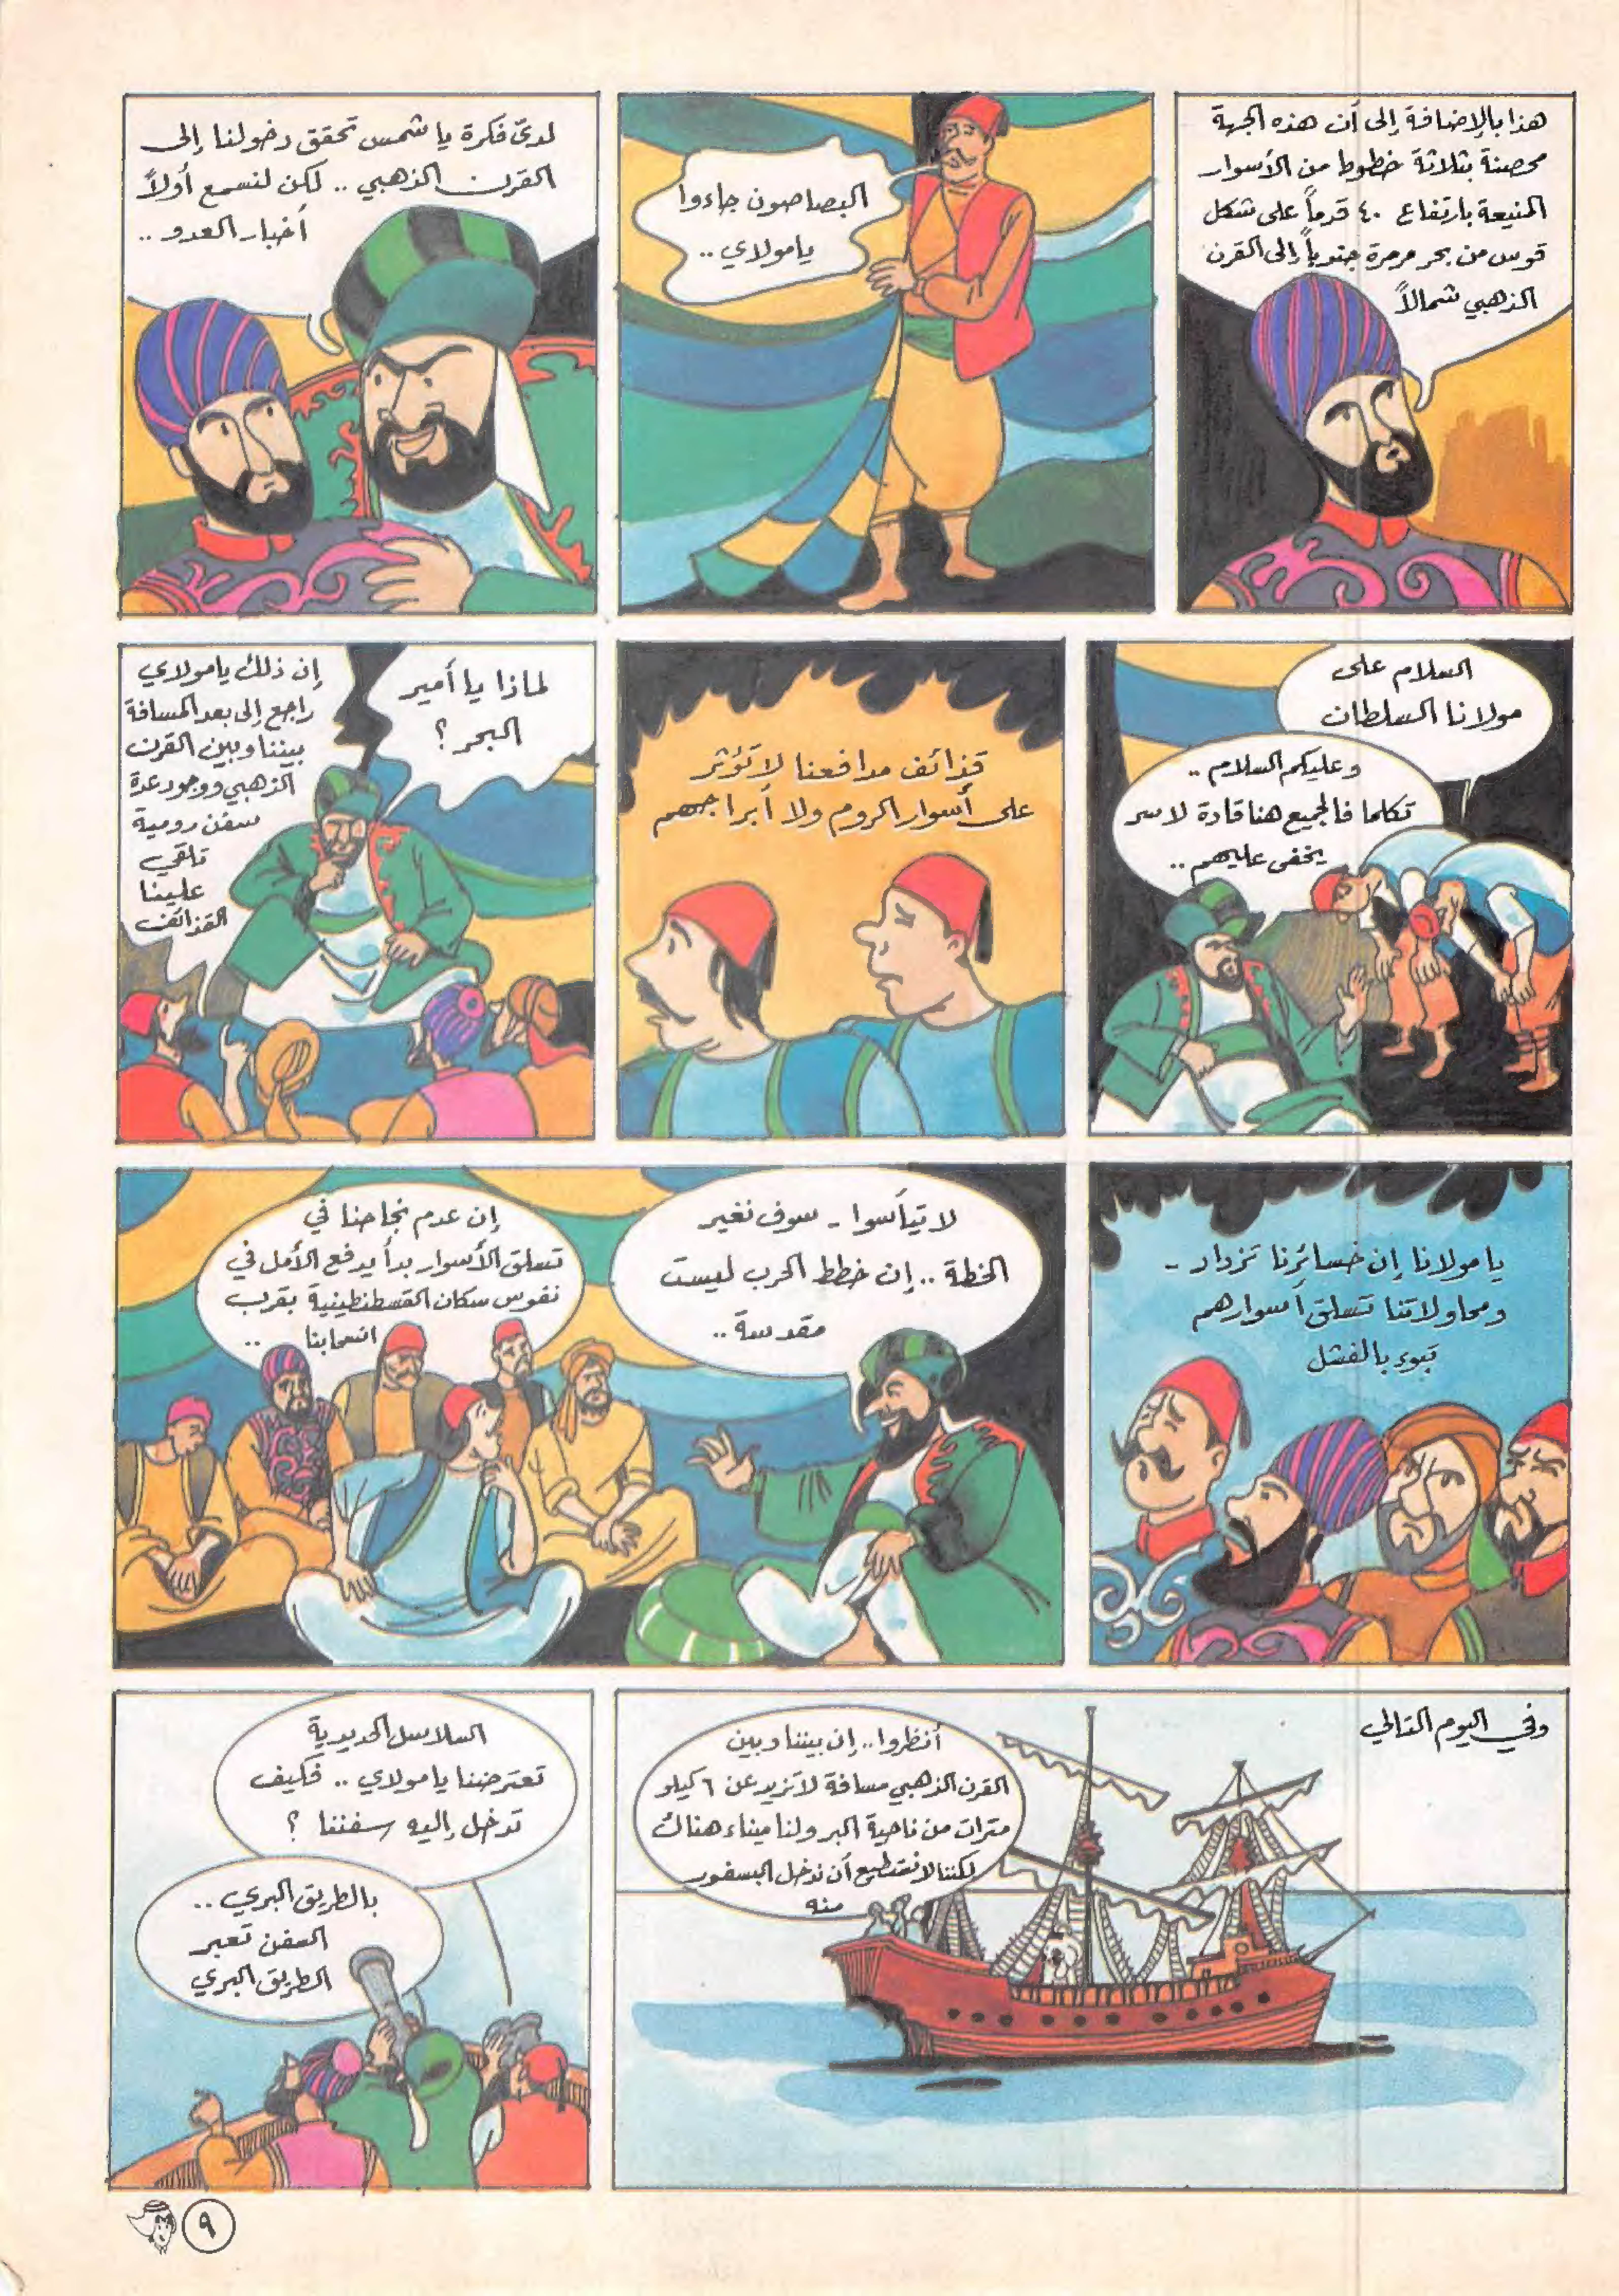 هذا بالإضافة إلى أن هذه الجهة
محصنة بثلاثة خطوط من الأسوار
المنيعة بارتفاع ٤٠ قدماً على شكل
قوس من بحر مرمرة جنوباً إلى القرن
الذهبي شمالاً
البصاصون جاءوا
يا مولاي ..
لديّ فكرة يا شمس تحقق دخولنا إلى
القرن الذهبي .. لكن لنسمع أولاً
أخبار العدو ..
السلام على
مولانا السلطان
وعليكم السلام ..
تكلما فالجميع هنا قادة لا سر
يخفى عليهم ..
قذائف مدافعنا لا تؤثر
على أسوار الروم ولا أبراجهم
لماذا يا أمير
البحر ؟
إن ذلك يا مولاي
راجع إلى بعد المسافة
بيننا وبين القرن
الذهبي ووجود عدة
سفن رومية
تلقي
علينا
القذائف
يا مولانا إن خسائرنا تزداد -
ومحاولاتنا تسلق أسوارهم
تبوء بالفشل
لا تيأسوا - سوف نغير
الخطة .. إن خطط الحرب ليست
مقدسة ..
إن عدم نجاحنا في
تسلق الأسوار بدأ يدفع الأمل في
نفوس سكان القسطنطينية بقرب
انسحابنا ..
وفي اليوم التالي
أنظروا .. إن بيننا وبين
القرن الذهبي مسافة لا تزيد عن ٦ كيلو
مترات من ناحية البر ولنا ميناء هناك
لكننا لا نستطيع أن ندخل البسفور
منه
السلاسل الحديدية
تعترضنا يا مولاي .. فكيف
تدخل إليه سفننا ؟
بالطريق البري ..
السفن تعبر
الطريق البري
٩